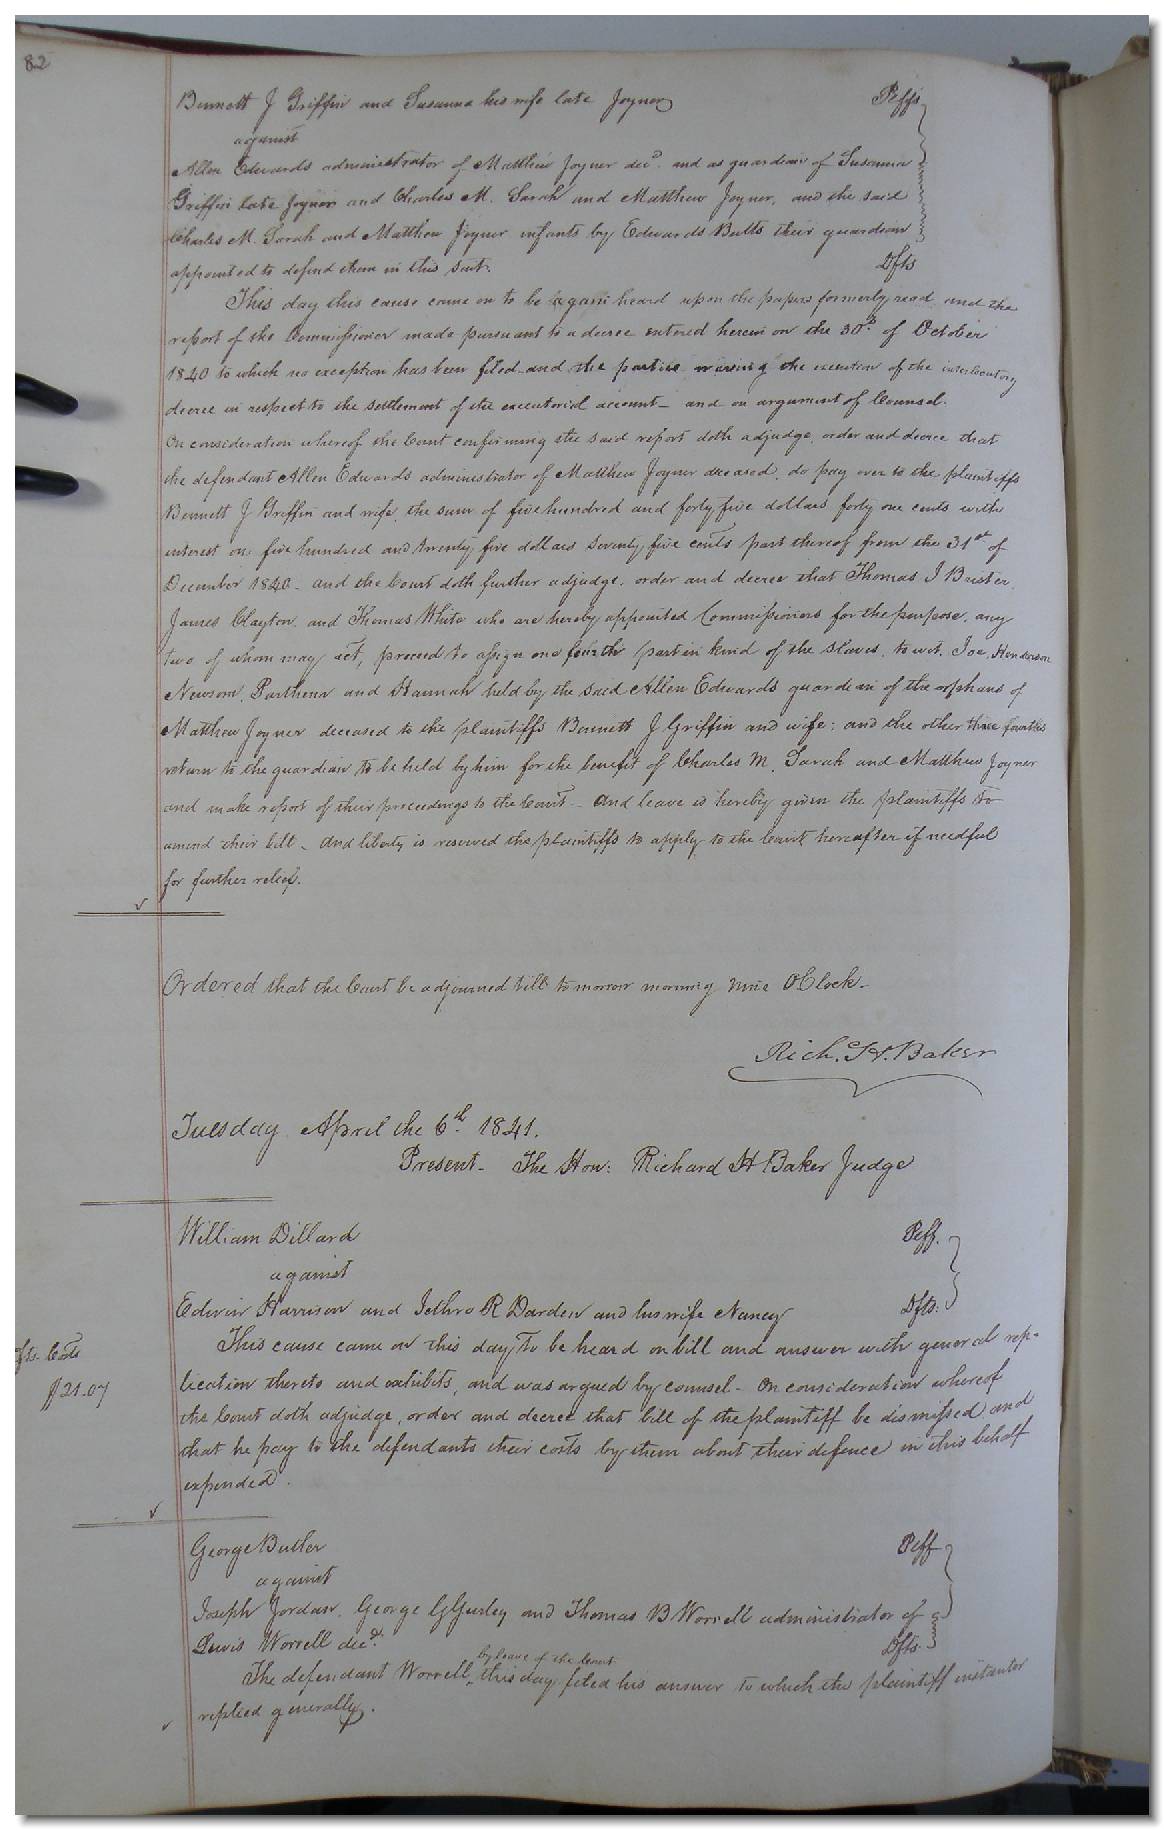 82
Bennett J Griffin and Susanna his wife late Joyner Pltffs
against
Allen Edwards administrator of Matthew Joyner decd. and as guardian of Susanna
Griffin late Joyner and Charles M. Sarah and Matthew Joyner, and the said
Charles M. Sarah and Matthew Joyner infants by Edwards Butts their guardian
appointed to defend them in this suit. Dfts
This day this cause came on to be again heard upon the papers formerly read and the
report of the Commissioner made pursuant to a decree entered herein on the 30th. of October
1840 to which no exception has been filed and the parties waiving the execution of the interlocutory
decree in respect to the settlement of the executorial account – and on argument of Counsel.
On consideration whereof the Court confirming the said report doth adjudge, order and decree that
the defendant Allen Edwards administrator of Matthew Joyner deceased, do pay over to the plaintiffs
Bennett J Griffin and wife, the sum of five hundred and forty five dollars forty one cents with
interest on five hundred and twenty five dollars seventy five cents part thereof from the 31st of
December 1840 – and the Court doth further adjudge, order and decree that Thomas J Brister
James Clayton, and Thomas White who are hereby appointed Commissioners for the purpose, any
two of whom may act, proceed to assign one fourth part in kind of the slaves, to wit, Joe, Henderson
Newsom, Parthena and Hannah held by the said Allen Edwards guardian of the orphans of
Matthew Joyner deceased to the plaintiffs Bennett J Griffin and wife; and the other three fourths
return to the guardian to be held by him for the benefit of Charles M, Sarah and Matthew Joyner
and make report of their proceedings to the Court – And leave is hereby given the plaintiffs to
amend their bill – And liberty is reserved the plaintiffs to apply to the Court hereafter if needful
for further relief.
Ordered that the Court be adjourned till to morrow morning nine OClock –
Rich. H. Baker
Tuesday April the 6th. 1841.
Present – The Hon: Richard H Baker Judge
William Dillard Pltff.
against
Edwin Harrison and Jethro R Darden and his wife Nancy Dfts.
This cause came on this day to be heard on bill and answer with general rep-
fts. Costs
lication thereto and exhibits, and was argued by counsel – On consideration whereof
$21.07
the Court doth adjudge, order and decree that bill of the plaintiff be dismissed and
that he pay to the defendants their costs by them about their defence in this behalf
expended.
George Butler Pltff
against
Joseph Jordan, George G Gurley and Thomas B Worrell administrator of
Lewis Worrell decd. Dfts.
by leave of the Court
The defendant Worrell, this day filed his answer to which the plaintiff instanter
replied generally.